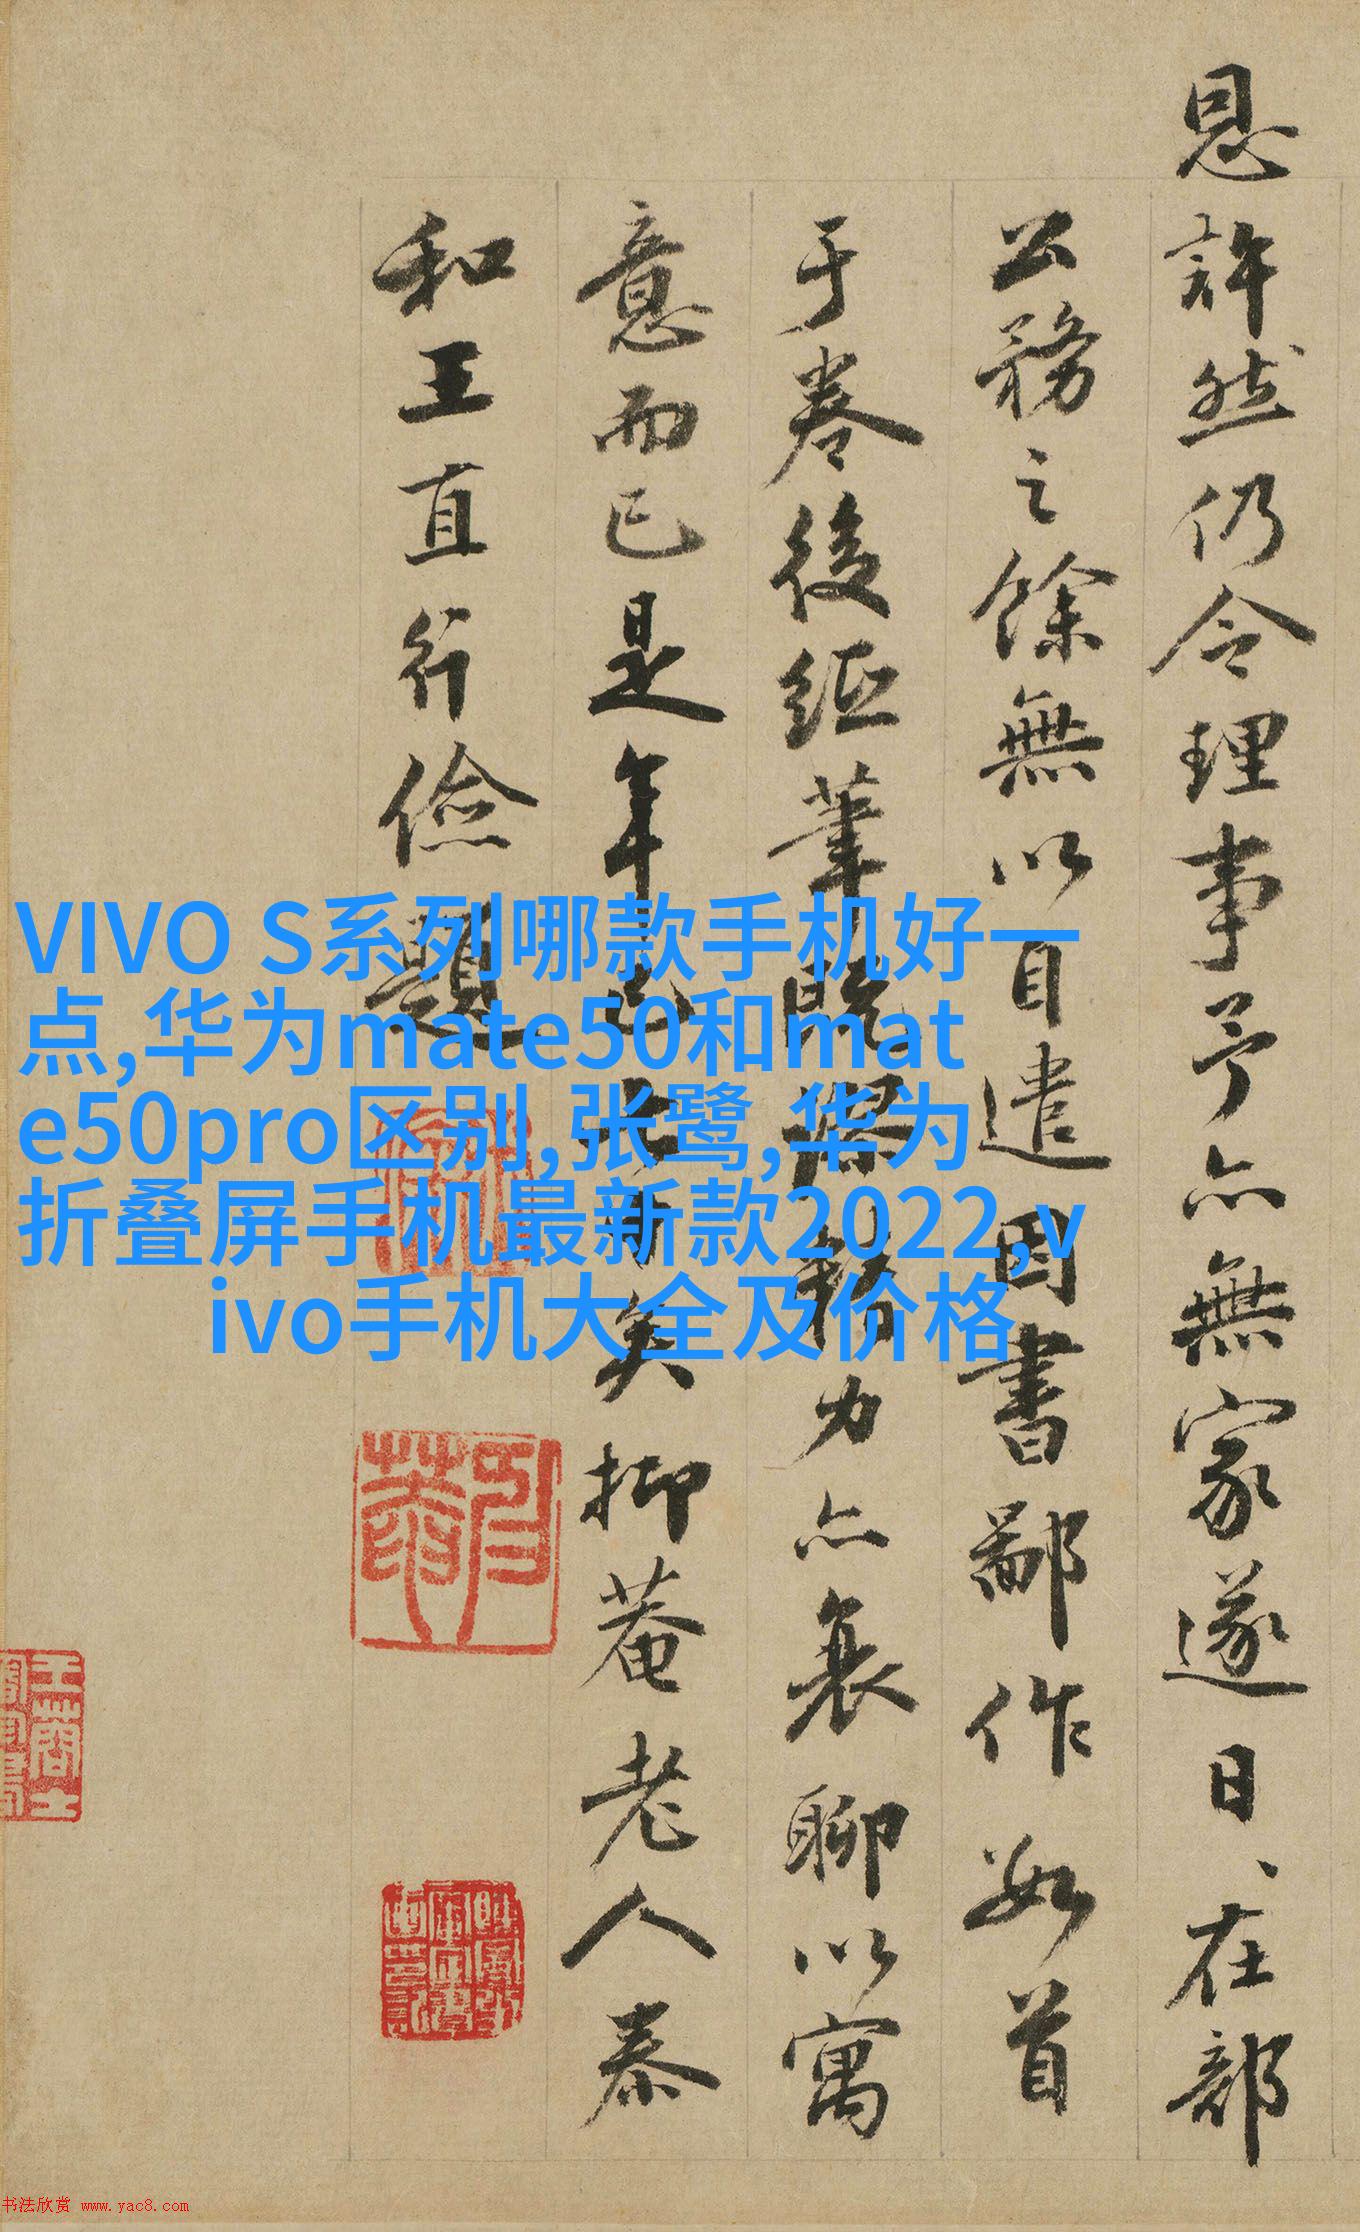 恩許然仍令理事予亦無家遂日、在部
公務之餘無以自遣因書鄙作數首
于卷後紙筆既力亦衰聊以寓
意而已是年已七十矣抑菴老人泰
和王直行儉題
VIVO S系列哪款手机好一
点,华为mate50和mat
e50pro区别,张鹭,华为
折叠屏手机最新款2022,v
ivo手机大全及价格
书法欣赏 www.yac8.com